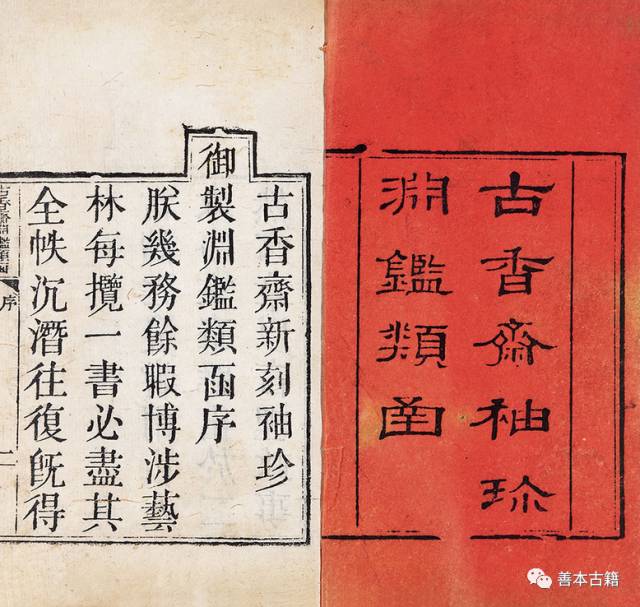 古香齋袖珍
淵鑑類函
古香齋新刻袖珍
御製淵鑑類函序
朕幾務餘暇博涉藝
林每攬一書必盡其
全帙沉潛往復既得
序
一
善本古籍